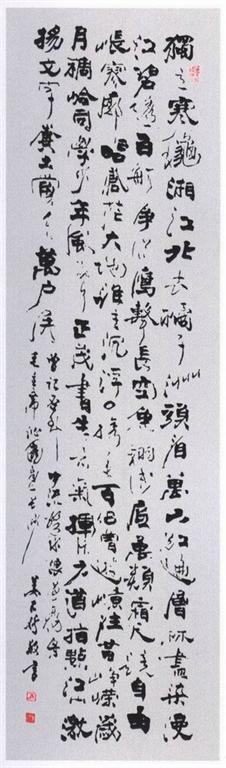 獨立寒龝湘江北去橘子洲頭看萬山紅遍層林盡染漫
江碧透百舸爭流鷹擊長空魚翔淺底萬類霜天競自由
悵寥廓問蒼茫大地誰主沉浮攜來百侶曾遊憶往昔崢嶸歲
月稠恰同學少年風華正茂書生意氣揮斥方遒指點江山激
揚文字糞土當年萬戶侯
曾記否到中流擊水浪遏飛舟
毛主席沁園春長沙
書